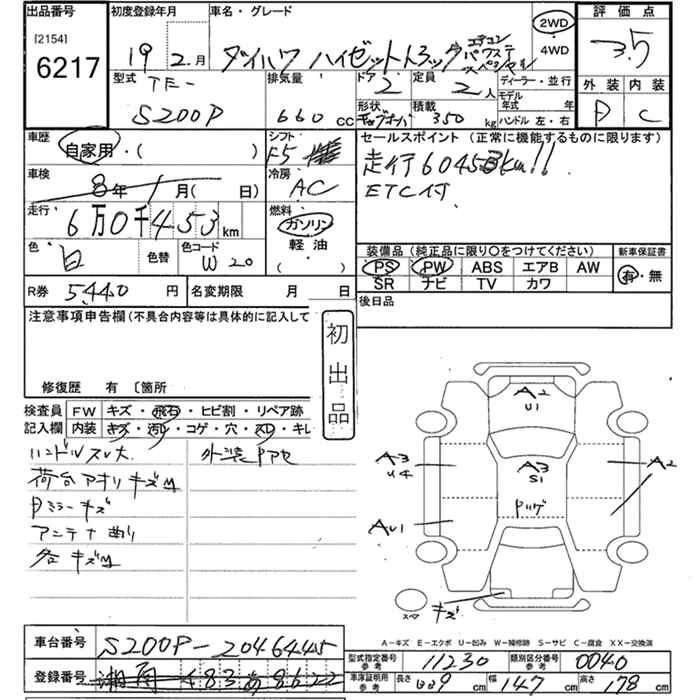 出品番号 初度登録年月 車名・グレード 評価点
[2154]
6217
19年 2.月 ダイハツ ハイゼットトラック エアコン パワステ スペシャル
2WD
4WD
3.5
型式 TE-
S200P
排気量
660 cc
ドア 2 定員 2人
ディーラー・並行
モデル年式 年
形状 積載 350 kg
ハンドル 左・右
外装 内装
D C
車歴 自家用・( )
シフト F5
セールスポイント(正常に機能するものに限ります)
走行60453km!!
ETC付
車検 8年 1月( 日)
冷房 AC
走行 6万0千453km
燃料 ガソリン
軽油
( )
色 白 色替 色コード W20
装備品(純正品に限り〇をつけてください) 新車保証書
PS PW ABS エアB AW 有・無
SR ナビ TV カワ
R券 5440 円 名変期限 月 日
後日品
注意事項申告欄(不具合内容等は具体的に記入して
初出品
修復歴 有 〔箇所
検査員 FW キズ・飛石・ヒビ割・リペア跡
記入欄 内装 キズ・汚れ・コゲ・穴・スレ・キレ
ハンドルスレ大 外装ヤケ
荷台アオリキズM
Dミラーキズ
アンテナ曲り
各キズM
A2
U1
A3
U4
A3
S1
A2
AU1
キズ
スペア
A-キズ E-エクボ U-凹み W-補修跡 S-サビ C-腐食 XX-交換済
車台番号 S200P-2046445
登録番号 湘南 483 あ 8622
型式指定番号 参考 11230 類別区分番号 参考 0040
車庫証明用 参考 長さ cm 幅 147 cm 高さ 178 cm